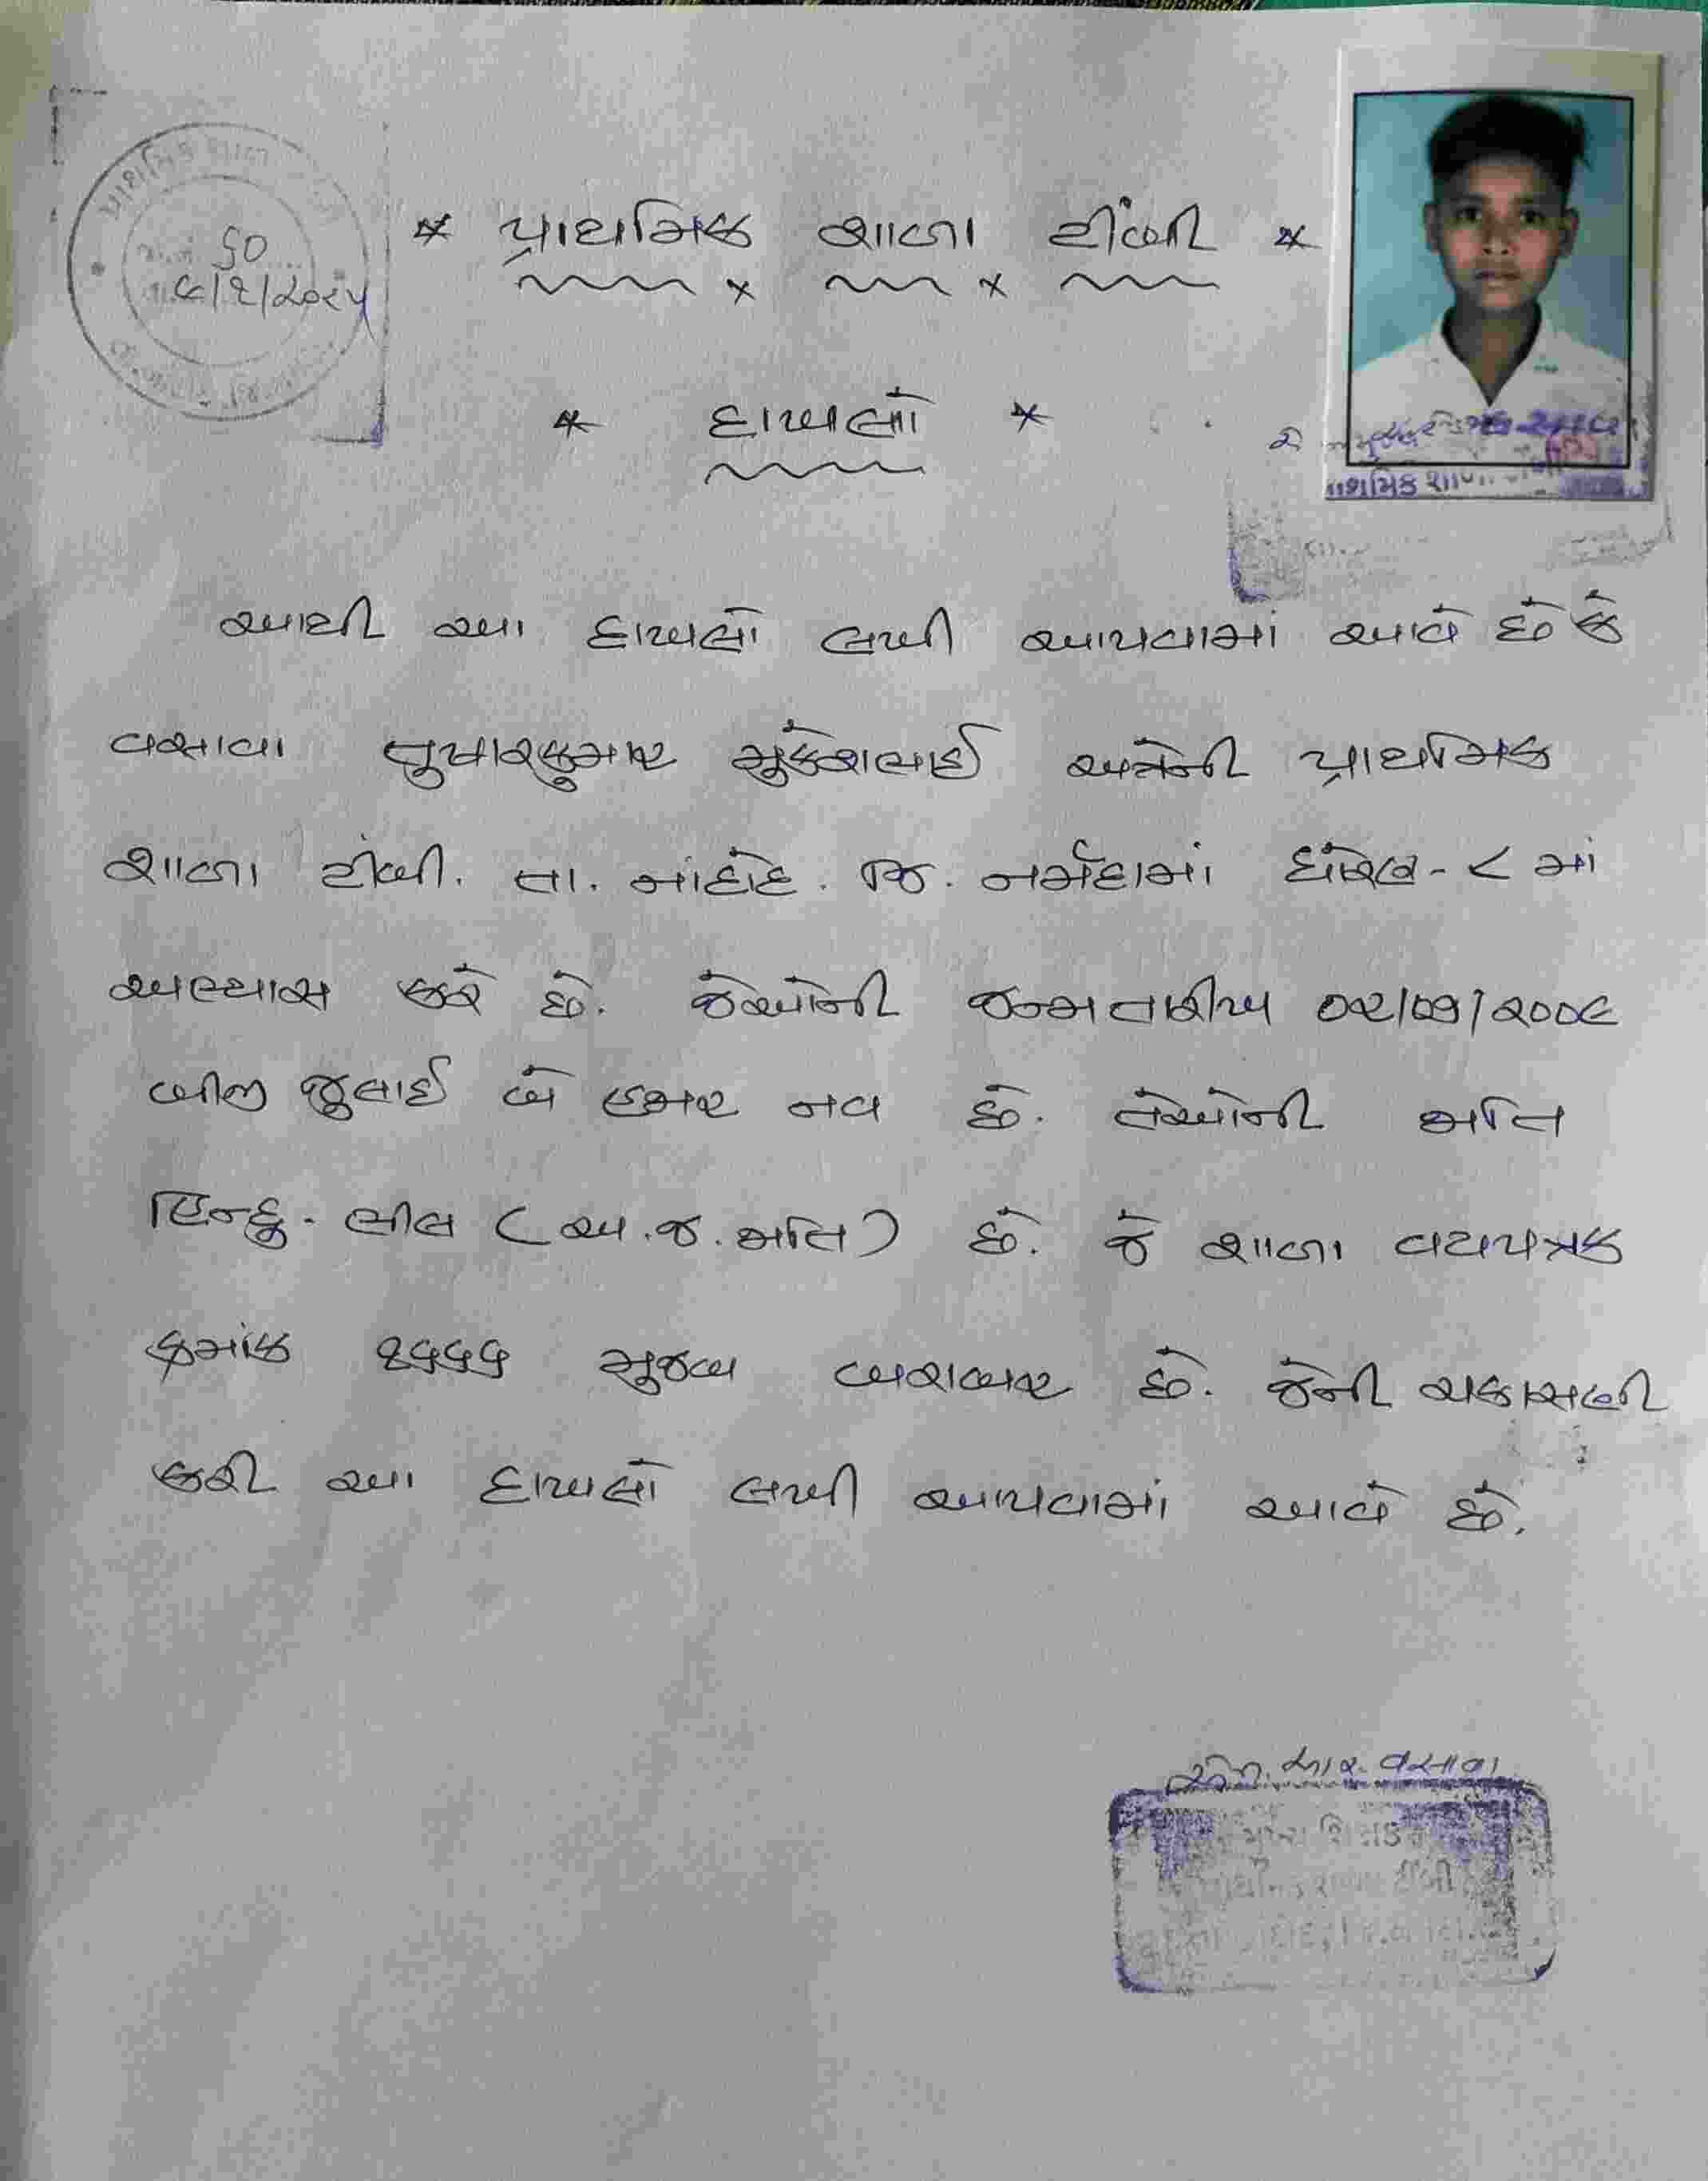 પ્રાથમિક શાળા
૬૦
૯/૧/૨૦૨૫
* પ્રાથમિક શાળા ટીંબી *
* દાખલો *
પ્રાથમિક શાળા
આથી આ દાખલો લખી આપવામાં આવે છે કે
વસાવા તુષારકુમાર મુકેશભાઈ અત્રેની પ્રાથમિક
શાળા ટીંબી. તા. નાંદોદ. જિ. નર્મદામાં ધોરણ-૮ માં
અભ્યાસ કરે છે. જેઓની જન્મ તારીખ ૦૨/૦૭/૨૦૦૯
બીજી જુલાઈ બે હજાર નવ છે. તેઓની જાતિ
હિન્દુ. ભીલ (અ.જ.જાતિ) છે. જે શાળા વયપત્રક
ક્રમાંક ૧૬૬૬ મુજબ બરાબર છે. જેની ચકાસણી
કરી આ દાખલો લખી આપવામાં આવે છે.
આર. વસાવા
મુખ્ય શિક્ષક
પ્રાથમિક શાળા ટીંબી